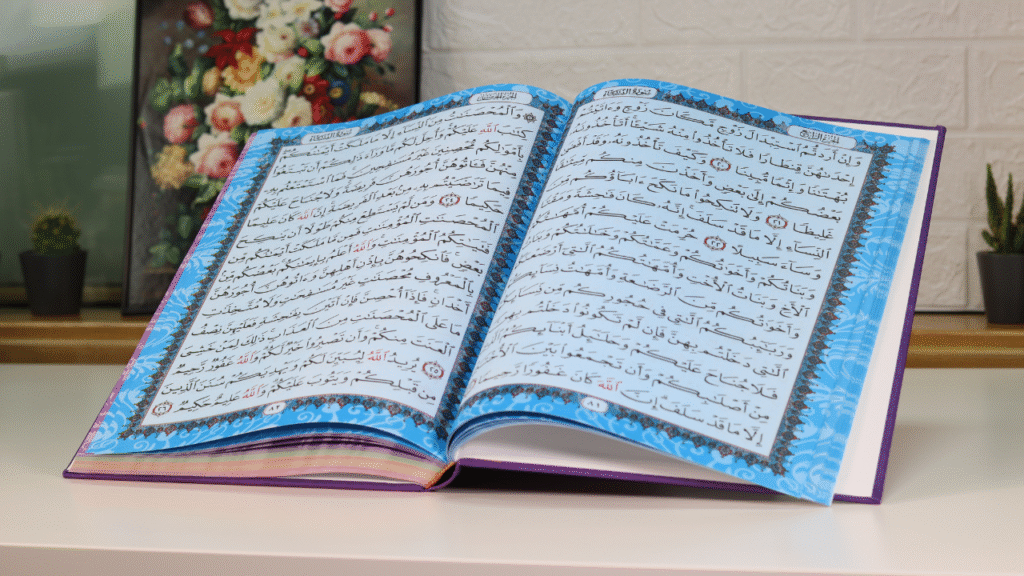 سُورَةُ النِّسَاءِ
الجُزْءُ الرَّابِعُ
وَإِنْ أَرَدتُّمُ ٱسْتِبْدَالَ زَوْجٍ مَّكَانَ زَوْجٍ وَءَاتَيْتُمْ
إِحْدَىٰهُنَّ قِنطَارًا فَلَا تَأْخُذُوا۟ مِنْهُ شَيْـًٔا أَتَأْخُذُونَهُۥ
بُهْتَٰنًا وَإِثْمًا مُّبِينًا ٢٠ وَكَيْفَ تَأْخُذُونَهُۥ وَقَدْ أَفْضَىٰ
بَعْضُكُمْ إِلَىٰ بَعْضٍ وَأَخَذْنَ مِنكُم مِّيثَٰقًا
غَلِيظًا ٢١ وَلَا تَنكِحُوا۟ مَا نَكَحَ ءَابَآؤُكُم مِّنَ
ٱلنِّسَآءِ إِلَّا مَا قَدْ سَلَفَ إِنَّهُۥ كَانَ فَٰحِشَةً وَمَقْتًا
وَسَآءَ سَبِيلًا ٢٢ حُرِّمَتْ عَلَيْكُمْ أُمَّهَٰتُكُمْ
وَبَنَاتُكُمْ وَأَخَوَٰتُكُمْ وَعَمَّٰتُكُمْ وَخَٰلَٰتُكُمْ وَبَنَاتُ
ٱلْأَخِ وَبَنَاتُ ٱلْأُخْتِ وَأُمَّهَٰتُكُمُ ٱلَّٰتِىٓ أَرْضَعْنَكُمْ
وَأَخَوَٰتُكُم مِّنَ ٱلرَّضَٰعَةِ وَأُمَّهَٰتُ نِسَآئِكُمْ
وَرَبَٰٓئِبُكُمُ ٱلَّٰتِى فِى حُجُورِكُم مِّن نِّسَآئِكُمُ
ٱلَّٰتِى دَخَلْتُم بِهِنَّ فَإِن لَّمْ تَكُونُوا۟ دَخَلْتُم بِهِنَّ
فَلَا جُنَاحَ عَلَيْكُمْ وَحَلَٰٓئِلُ أَبْنَآئِكُمُ ٱلَّذِينَ
مِنْ أَصْلَٰبِكُمْ وَأَن تَجْمَعُوا۟ بَيْنَ ٱلْأُخْتَيْنِ
إِلَّا مَا قَدْ سَلَفَ إِنَّ ٱللَّهَ كَانَ غَفُورًا رَّحِيمًا
٨١
الجُزْءُ الخَامِسُ
سُورَةُ النِّسَاءِ
وَٱلْمُحْصَنَٰتُ مِنَ ٱلنِّسَآءِ إِلَّا مَا مَلَكَتْ أَيْمَٰنُكُمْ
كِتَٰبَ ٱللَّهِ عَلَيْكُمْ وَأُحِلَّ لَكُم مَّا وَرَآءَ ذَٰلِكُمْ أَن تَبْتَغُوا۟
بِأَمْوَٰلِكُم مُّحْصِنِينَ غَيْرَ مُسَٰفِحِينَ فَمَا ٱسْتَمْتَعْتُم بِهِۦ
مِنْهُنَّ فَـَٔاتُوهُنَّ أُجُورَهُنَّ فَرِيضَةً وَلَا جُنَاحَ عَلَيْكُمْ
فِيمَا تَرَٰضَيْتُم بِهِۦ مِنۢ بَعْدِ ٱلْفَرِيضَةِ إِنَّ ٱللَّهَ كَانَ عَلِيمًا
حَكِيمًا ٢٤ وَمَن لَّمْ يَسْتَطِعْ مِنكُمْ طَوْلًا أَن يَنكِحَ
ٱلْمُحْصَنَٰتِ ٱلْمُؤْمِنَٰتِ فَمِن مَّا مَلَكَتْ أَيْمَٰنُكُم مِّن
فَتَيَٰتِكُمُ ٱلْمُؤْمِنَٰتِ وَٱللَّهُ أَعْلَمُ بِإِيمَٰنِكُم بَعْضُكُم مِّنۢ
بَعْضٍ فَٱنكِحُوهُنَّ بِإِذْنِ أَهْلِهِنَّ وَءَاتُوهُنَّ أُجُورَهُنَّ
بِٱلْمَعْرُوفِ مُحْصَنَٰتٍ غَيْرَ مُسَٰفِحَٰتٍ وَلَا مُتَّخِذَٰتِ
أَخْدَانٍ فَإِذَآ أُحْصِنَّ فَإِنْ أَتَيْنَ بِفَٰحِشَةٍ فَعَلَيْهِنَّ نِصْفُ
مَا عَلَى ٱلْمُحْصَنَٰتِ مِنَ ٱلْعَذَابِ ذَٰلِكَ لِمَنْ خَشِىَ
ٱلْعَنَتَ مِنكُمْ وَأَن تَصْبِرُوا۟ خَيْرٌ لَّكُمْ وَٱللَّهُ غَفُورٌ رَّحِيمٌ
٢٥ يُرِيدُ ٱللَّهُ لِيُبَيِّنَ لَكُمْ وَيَهْدِيَكُمْ سُنَنَ ٱلَّذِينَ
مِن قَبْلِكُمْ وَيَتُوبَ عَلَيْكُمْ وَٱللَّهُ عَلِيمٌ حَكِيمٌ ٢٦
٨٢